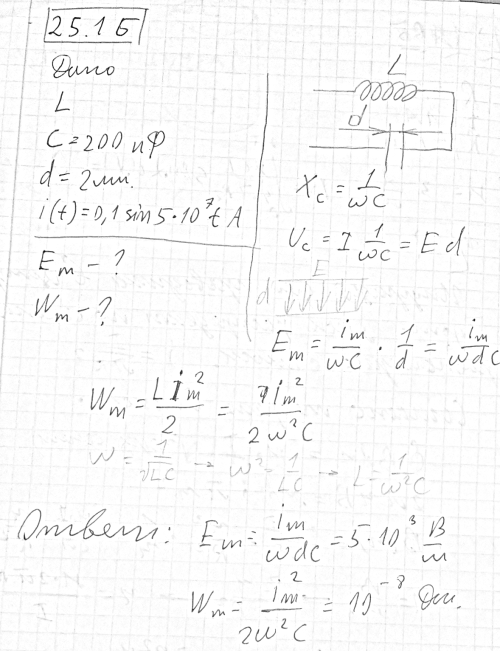 25.1 Б
Дано
L
C = 200 пФ
d = 2 мм.
i(t) = 0,1 sin 5·10⁷t А
Eₘ - ?
Wₘ - ?
L
d
X_C = 1/ωC
U_C = I 1/ωC = E d
E
d
Eₘ = iₘ/ωC · 1/d = iₘ/ωdC
Wₘ = L iₘ²/2 = iₘ²/2ω²C
ω = 1/√LC → ω² = 1/LC → L = 1/ω²C
Ответ: Eₘ = iₘ/ωdC = 5·10³ В/м
Wₘ = iₘ²/2ω²C = 10⁻⁸ Дж.